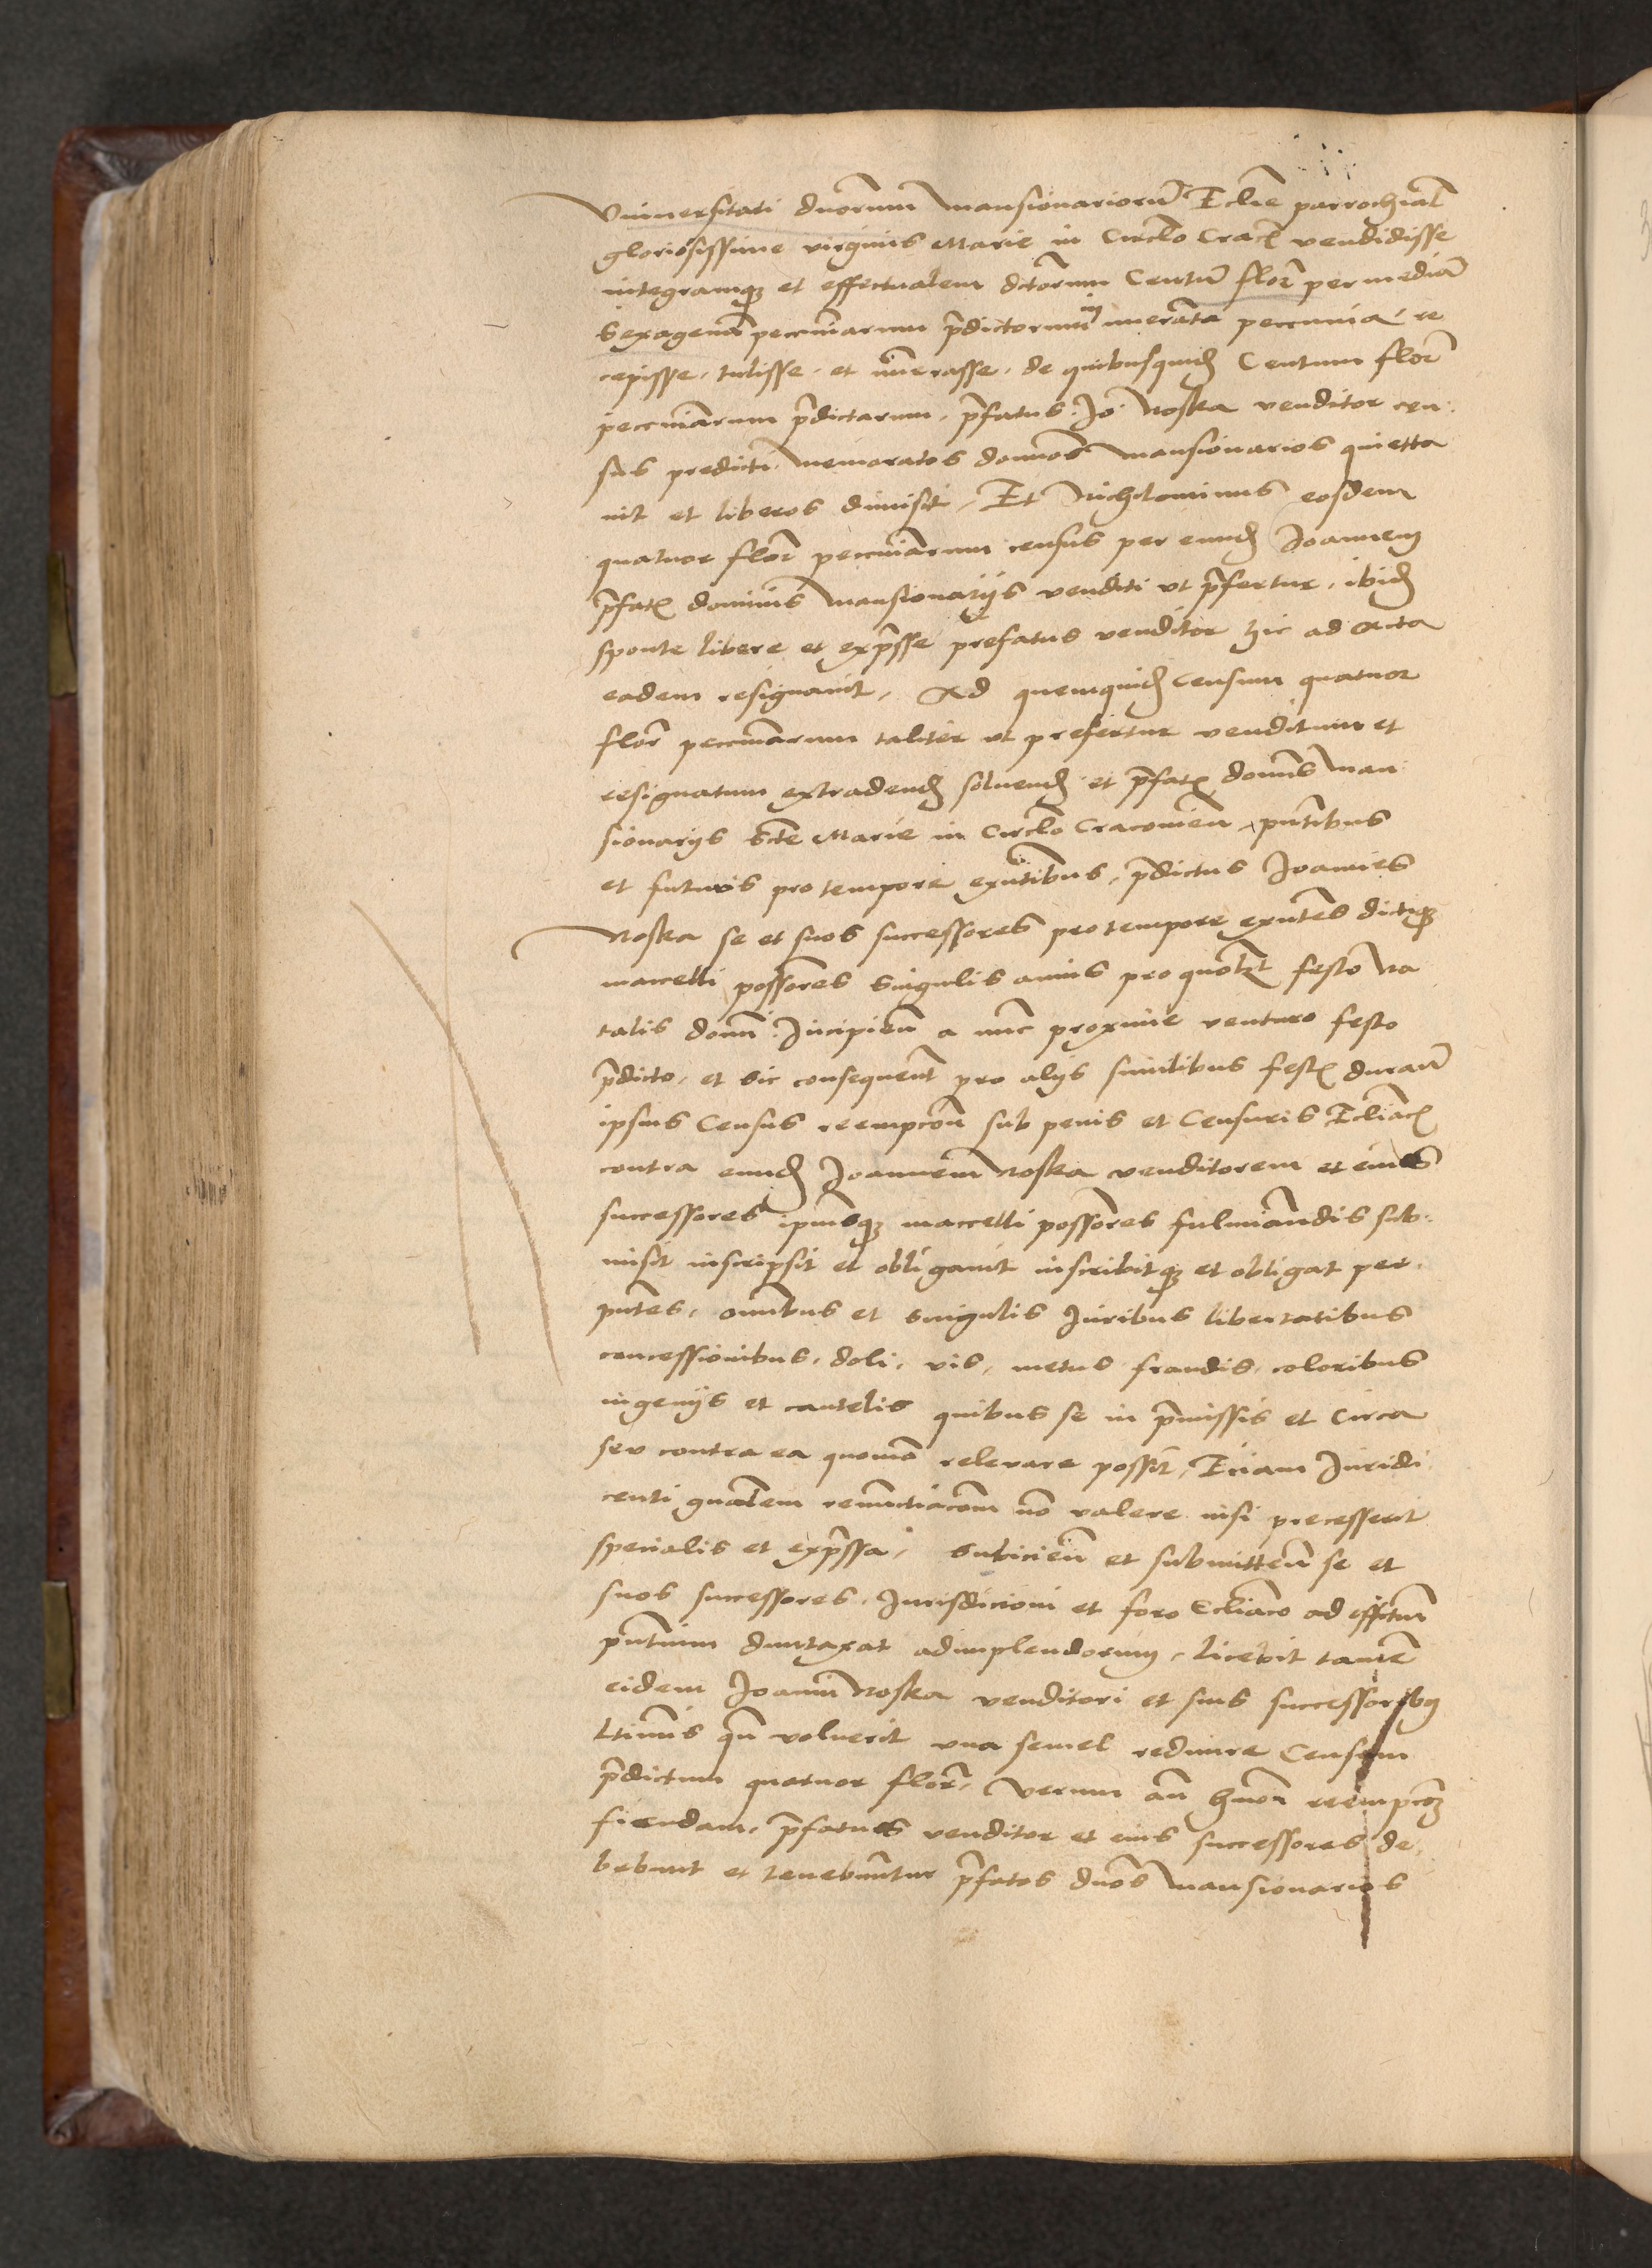 Vniuersitati dnorum Mansionarioru Eclie parrochial
gloriosissime virginis Marie in Circlo Crac vendidisse
integramq et effectualem dctorum Centu flor per media
sexagena pecuniarum pdictorum in numerata peccunia re
cepisse, tulisse, et numerasse, de quibusquid Centum flor
pecuniarum pdictarum, pfatus Jo Noska venditor cen
sus predicti memoratos domnos Mansionarios quietta
uit et liberos dimisit, Et Nichilominus eosdem
quatuor flor pecuniarum census per eund Joannem
pfat dominis Mansionarijs venditi vt pfertur, ibid
sponte libere et expsse prefatus venditor hic ad Acta
eadem resignauit, Ad quemquid censum quatuor
flor pecuniarum taliter vt prefertur venditum et
resignatum extradend soluend et pfat domnis Man
sionarijs Scte Marie in Circlo Cracouien, pntibus
et futuris pro tempore exntibus, pdictus Joannes
Noska se et suos successores pro tempore exntes dictiq
maccelli possores singulis annis pro quolzt festo Na
talis domi Incipien a nunc proxime venturo festo
pdicto, et sic consequent pro alijs similibus fest duran
ipsius Census reempcon sub penis et Censuris Ecliac
contra eund Joannem Noska venditorem et eius
successores ipsiusq maccelli possores fulminandis sub
misit inscripsit et obligauit inscribitq et obligat per
pntes, omnibus et singulis Juribus libertatibus
concessionibus, doli, vis, metus fraudis, coloribus
ingenijs et cautelis quibus se in pmissis et circa
seu contra ea quomo releuare possit, Eciam Juridi
centi gnalem renunctiacom no valere nisi precesserit
specialis et expssa, subicien et submitten se et
suos successores, Jurisdicioni et foro Ecliaco ad effctum
pntium duntaxat adimplendorum, licebit tamen
eidem Joanni Noska venditori et suis successoribus
ltimis qn voluerit vna semel redimire Censum
pdictum quatuor flor, Verum an hmoi reempcoz
fiendam, pfatus venditor et eius successores de
bebunt et tenebuntur pfatos dnos Mansionarios